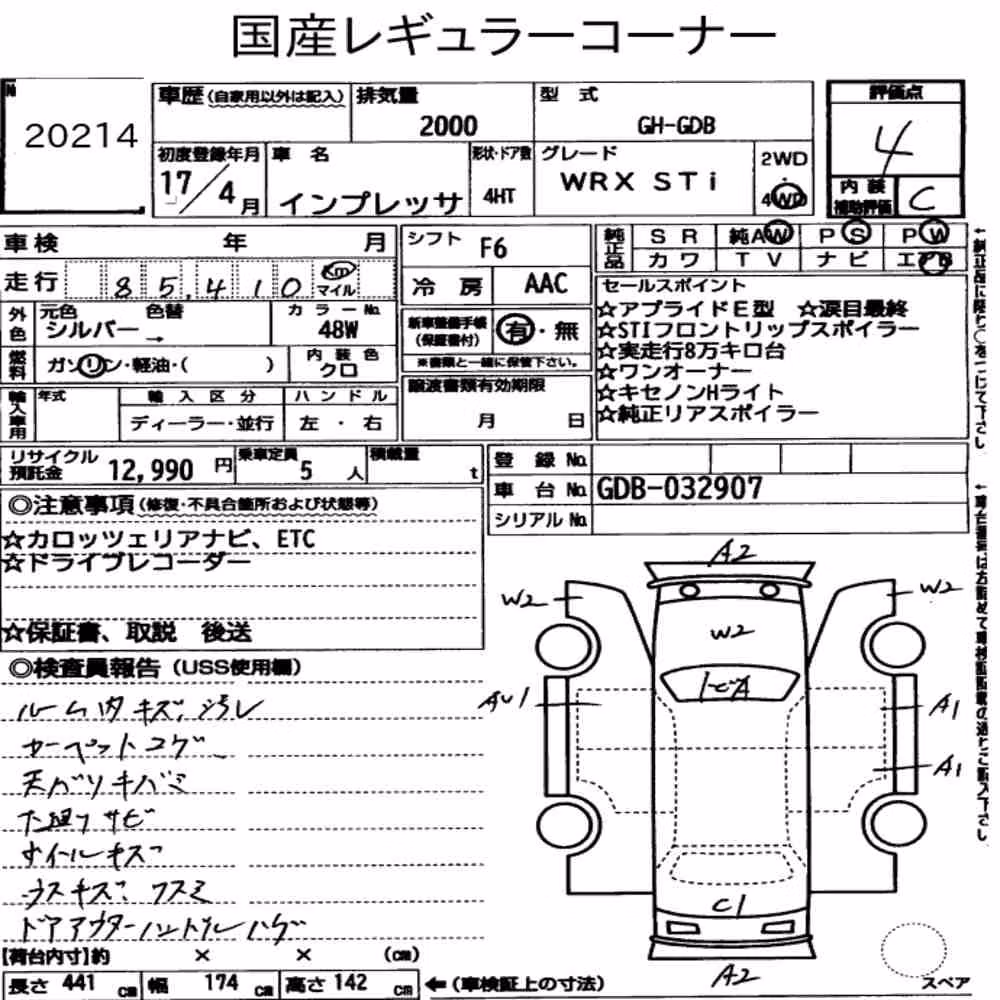 国産レギュラーコーナー
№ 20214
車歴(自家用以外は記入) 排気量 型 式 評価点
2000 GH-GDB 4
初度登録年月 車 名 形状・ドア数 グレード 2WD
17/4月 インプレッサ 4HT WRX STi 4WD
内装補助評価 C
車検 年 月 シフト F6 純正品 SR 純AW PS PW
カワ TV ナビ エアB
走行 85,410 Km マイル 冷房 AAC
外色 元色 色替 カラーNo.
シルバー → 48W
新車整備手帳(保証書付) 有・無
※書類と一緒に保管下さい。
燃料 ガソリン・軽油・( ) 内装色 クロ
譲渡書類有効期限
月 日
輸入車用 年式 輸入区分 ハンドル
ディーラー・並行 左・右
セールスポイント
☆アプライドE型 ☆涙目最終
☆STIフロントリップスポイラー
☆実走行8万キロ台
☆ワンオーナー
☆キセノンHライト
☆純正リアスポイラー
リサイクル預託金 12,990円 乗車定員 5人 積載量 t
登録No.
車台No. GDB-032907
シリアルNo.
◎注意事項(修復・不具合箇所および状態等)
☆カロッツェリアナビ、ETC
☆ドライブレコーダー
☆保証書、取説 後送
◎検査員報告(USS使用欄)
ルーム内キズ、汚レ
カーペットコゲ
天バリキバミ
下廻りサビ
ホイールキズ
ウスキズ、クスミ
ドアアウターハンドルハゲ
A2
W2 W2
W2
トビA
AU1 A1
A1
C1
A2
スペア
【荷台内寸】約 × × (cm)
長さ 441 cm 幅 174 cm 高さ 142 cm ←(車検証上の寸法)